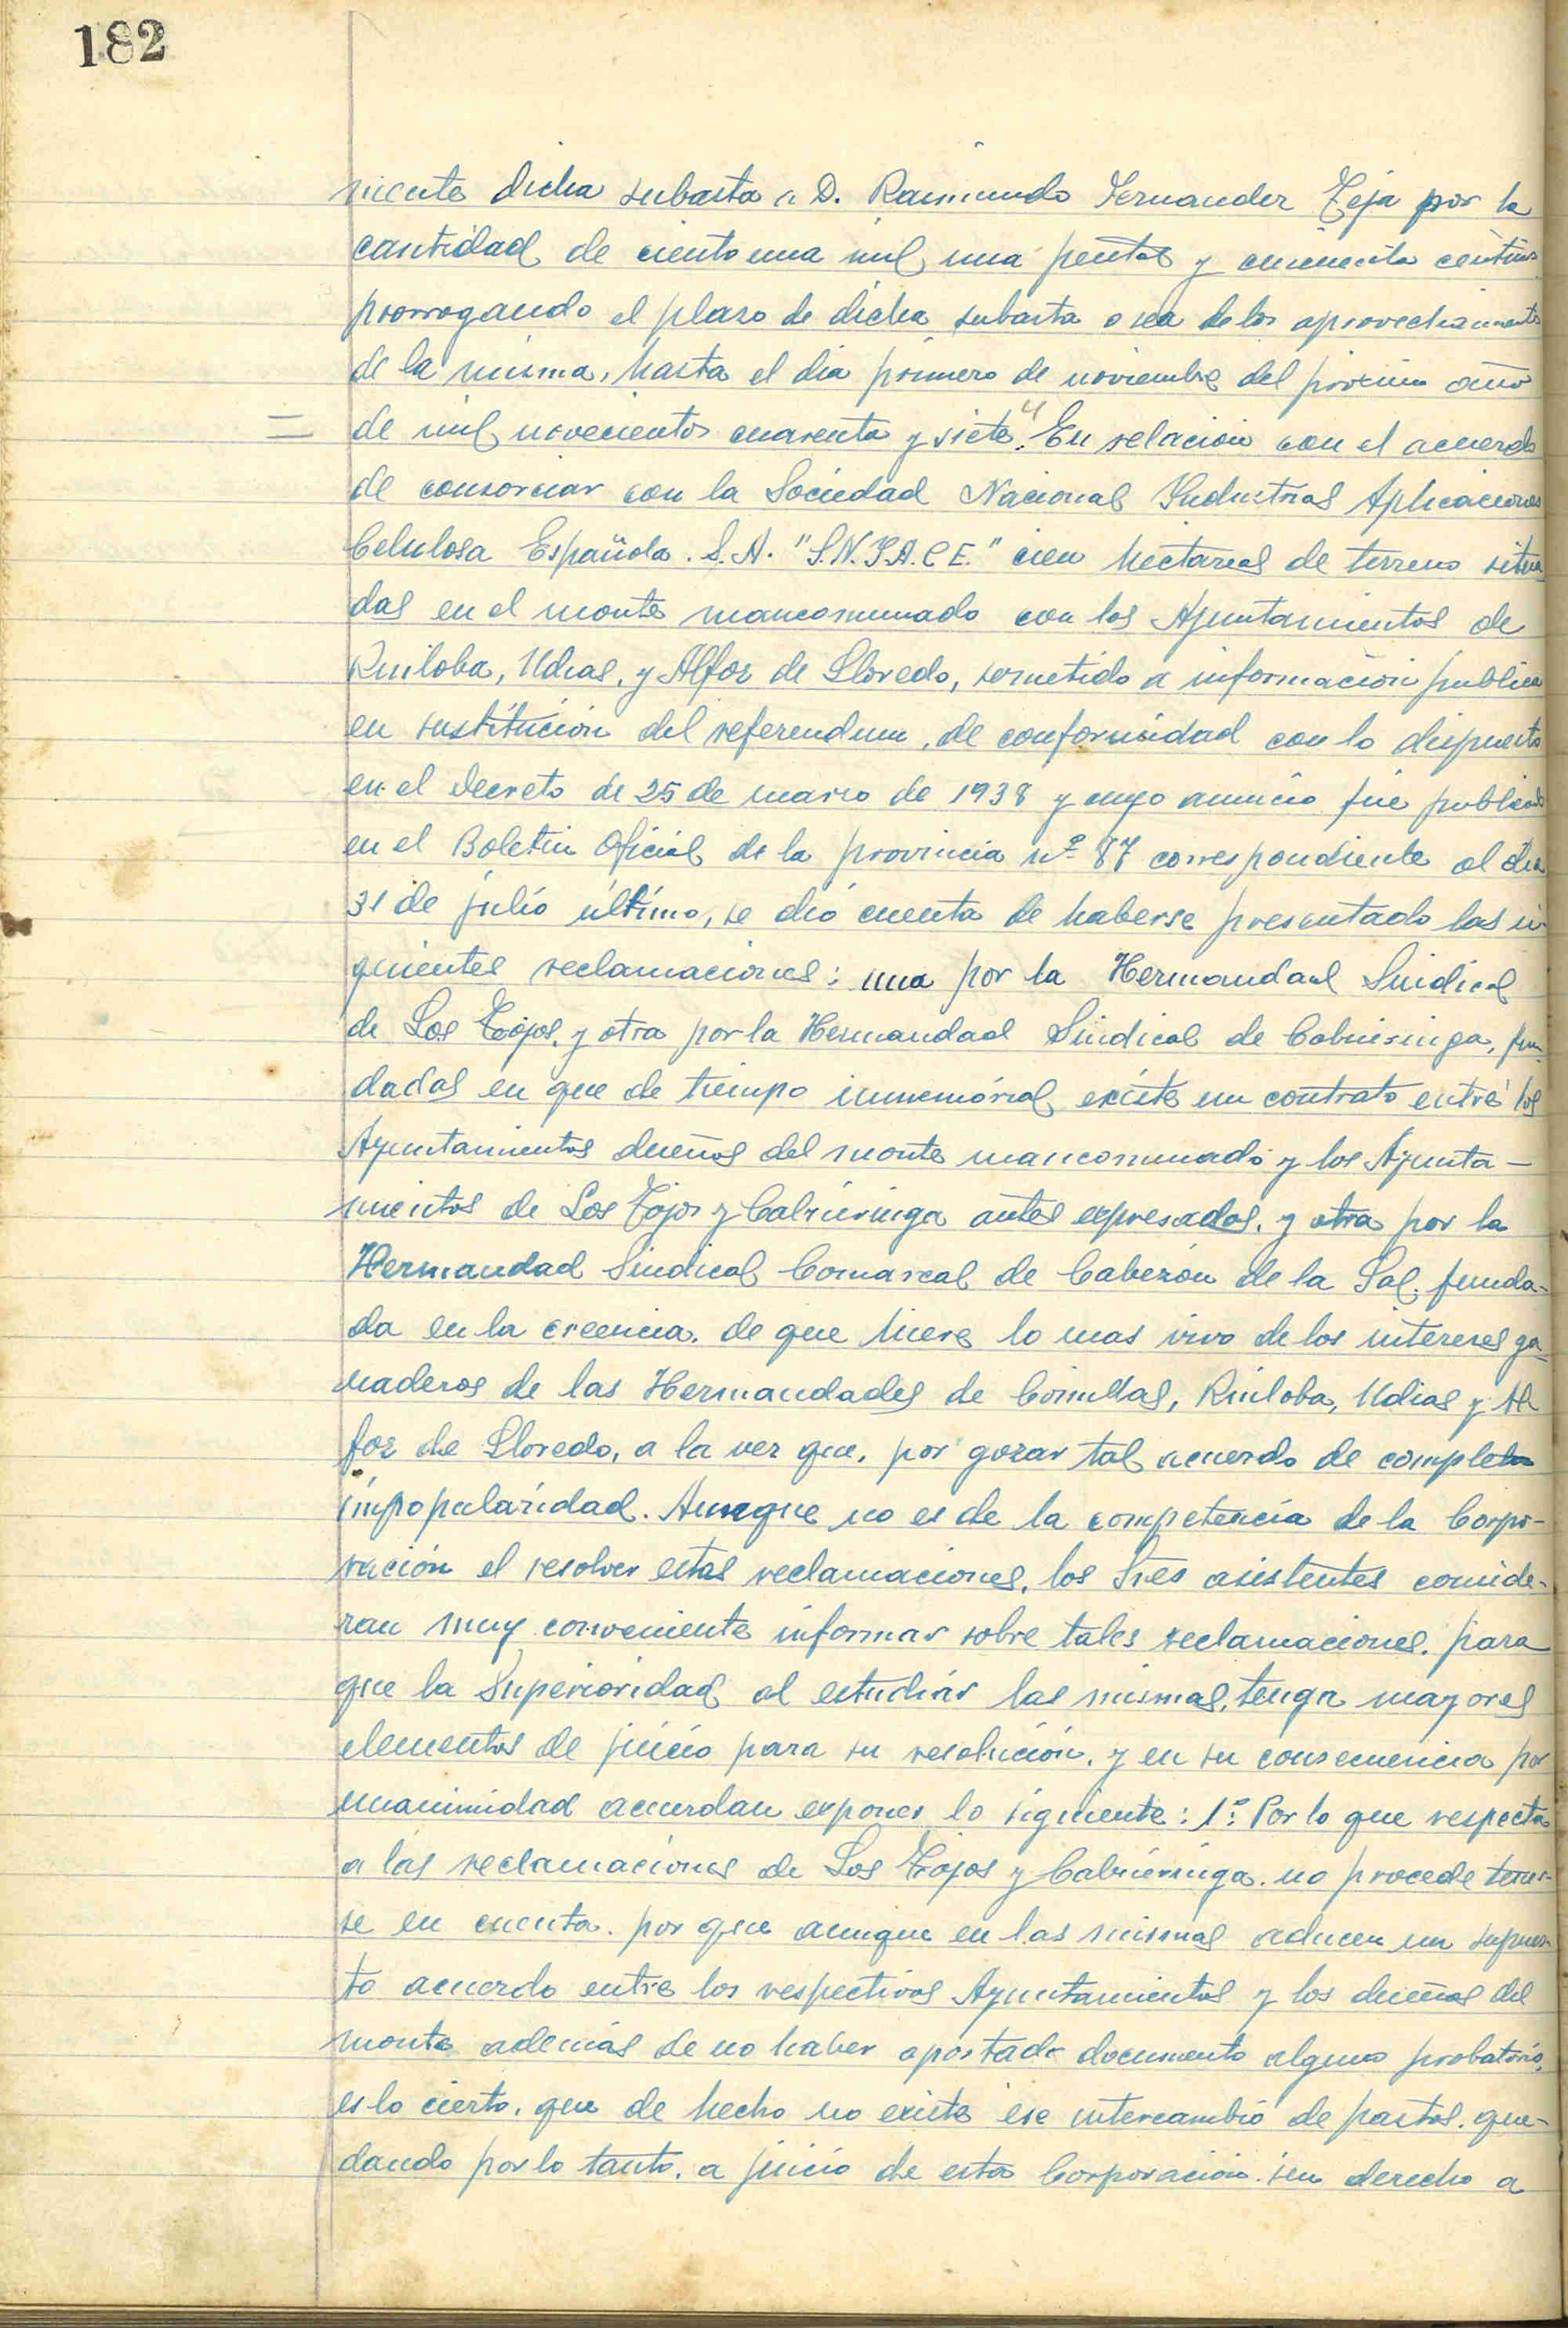 182
mente dicha subasta a D. Raimundo Fernandez Teja por la
cantidad de ciento una mil una pesetas y cincuenta centimos
prorrogando el plazo de dicha subasta o sea de los aprovechamientos
de la misma, hasta el dia primero de noviembre del proximo año
= de mil novecientos cuarenta y siete. En relacion con el acuerdo
de consorciar con la Sociedad Nacional Industrias Aplicaciones
Celulosa Española. S.A. "S.N.I.A.C.E." cien hectareas de terreno situa-
das en el monte mancomunado con los Ayuntamientos de
Ruiloba, Udias, y Alfoz de Lloredo, sometido a información publica
en sustitución del referendum, de conformidad con lo dispuesto
en el decreto de 25 de marzo de 1938 y cuyo anuncio fué publicado
en el Boletin Oficial de la provincia nº 87 correspondiente al dia
31 de julio último, se dió cuenta de haberse presentado las si-
guientes reclamaciones: una por la Hermandad Sindical
de Los Tojos, y otra por la Hermandad Sindical de Cabuerniga, fun-
dadas en que de tiempo inmemorial existe un contrato entre los
Ayuntamientos dueños del monte mancomunado y los Ayunta-
mientos de Los Tojos y Cabuerniga antes expresados, y otra por la
Hermandad Sindical Comarcal de Cabezón de la Sal, funda-
da en la creencia, de que hiere lo mas vivo de los intereses ga-
naderos de las Hermandades de Comillas, Ruiloba, Udias y Al
foz de Lloredo, a la vez que, por gozar tal acuerdo de completa
impopularidad. Aunque no es de la competencia de la Corpo-
ración el resolver estas reclamaciones, los Sres asistentes conside-
ran muy conveniente informar sobre tales reclamaciones, para
que la Superioridad al estudiar las mismas, tenga mayores
elementos de juicio para su resolución, y en su consecuencia por
unanimidad acuerdan exponer lo siguiente: 1º: Por lo que respecta
a las reclamaciones de Los Tojos y Cabuerniga, no procede tener-
se en cuenta, por que aunque en las mismas aducen un supues-
to acuerdo entre los respectivos Ayuntamientos y los dueños del
monte además de no haber aportado documento alguno probatorio,
es lo cierto, que de hecho no existe ese intercambio de pastos, que-
dando por lo tanto, a juicio de esta Corporación sin derecho a